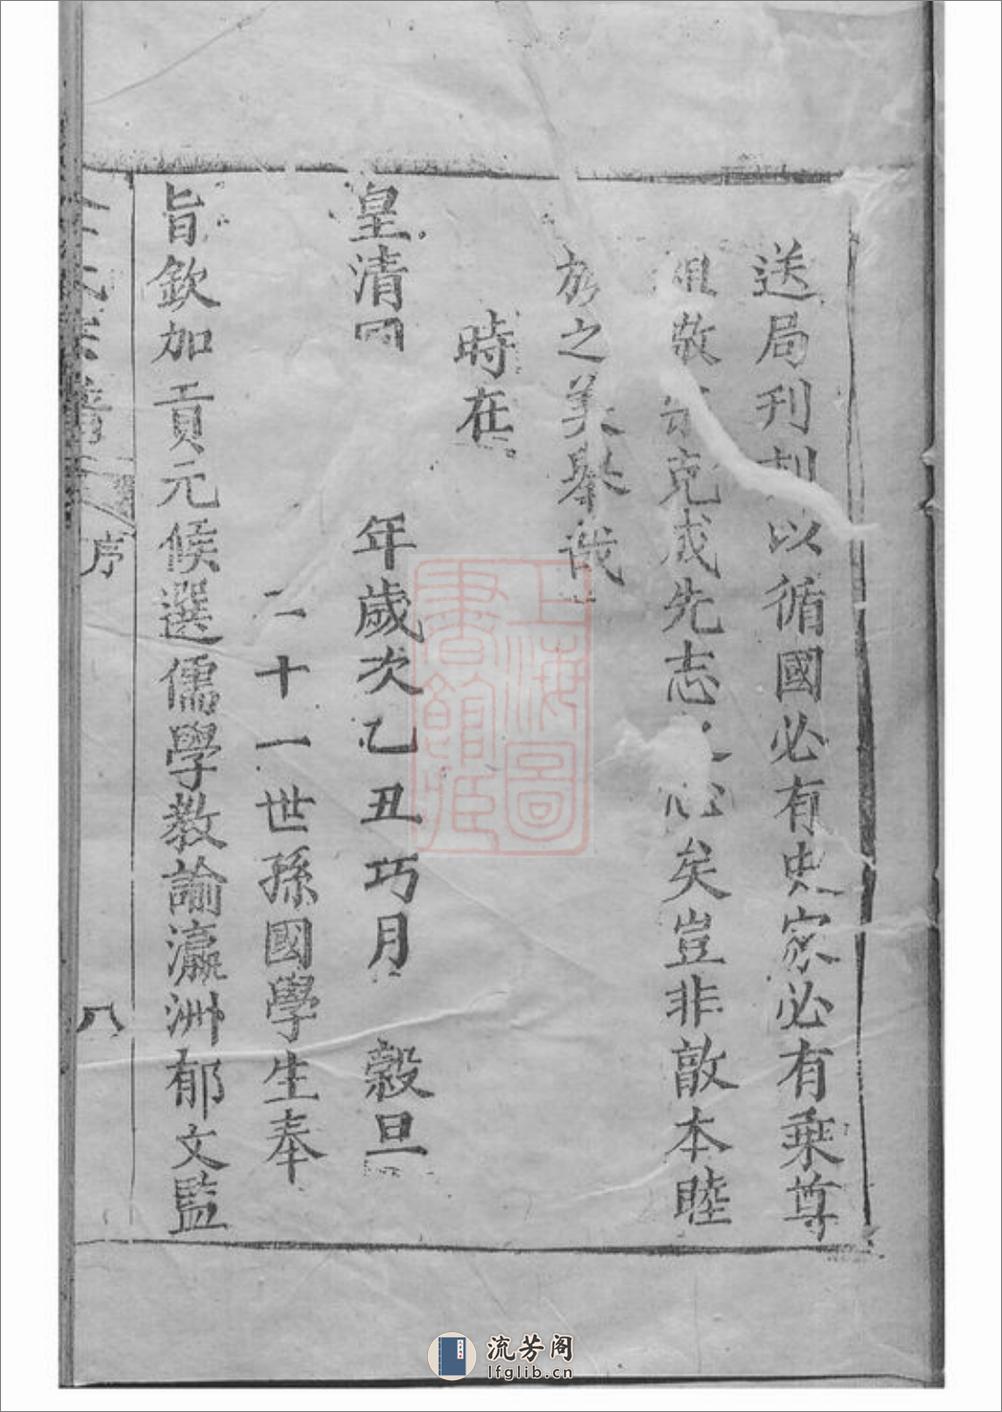 送局刊刻以循國必有史家必有乘尊
祖敬宗克成先志矣豈非敦本睦
族之美舉哉
時在
皇清同年歲次乙丑巧月 穀旦
二十一世孫國學生奉
旨欽加貢元候選儒學教諭瀛洲郁文監
氏宗譜 序 八
上海圖書館藏
流芳阁
lfglib.cn